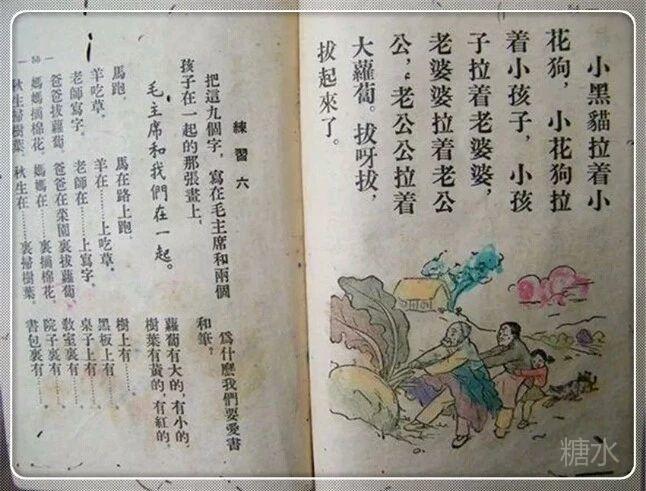 小黑貓拉着小
花狗，小花狗拉
着小孩子，小孩
子拉着老婆婆，
老婆婆拉着老公
公，老公公拉着
大蘿蔔。拔呀拔，
拔起來了。
練習六
把這九個字，寫在毛主席和兩個
孩子在一起的那張畫上，
毛主席和我們在一起。
馬跑。 馬在路上跑。
羊吃草。 羊在……上吃草。
老師寫字。 老師在……上寫字。
爸爸拔蘿蔔。 爸爸在菜園裏拔蘿蔔。
媽媽摘棉花。 媽媽在……裏摘棉花。
秋生掃樹葉。 秋生在……裏掃樹葉。
爲什麽我們要愛書
和筆？
蘿蔔有大的，有小的，
樹葉有黃的，有紅的，
樹上有……。
黑板上有……。
桌子上有……。
教室裏有……。
院子裏有……。
書包裏有……。
糖水